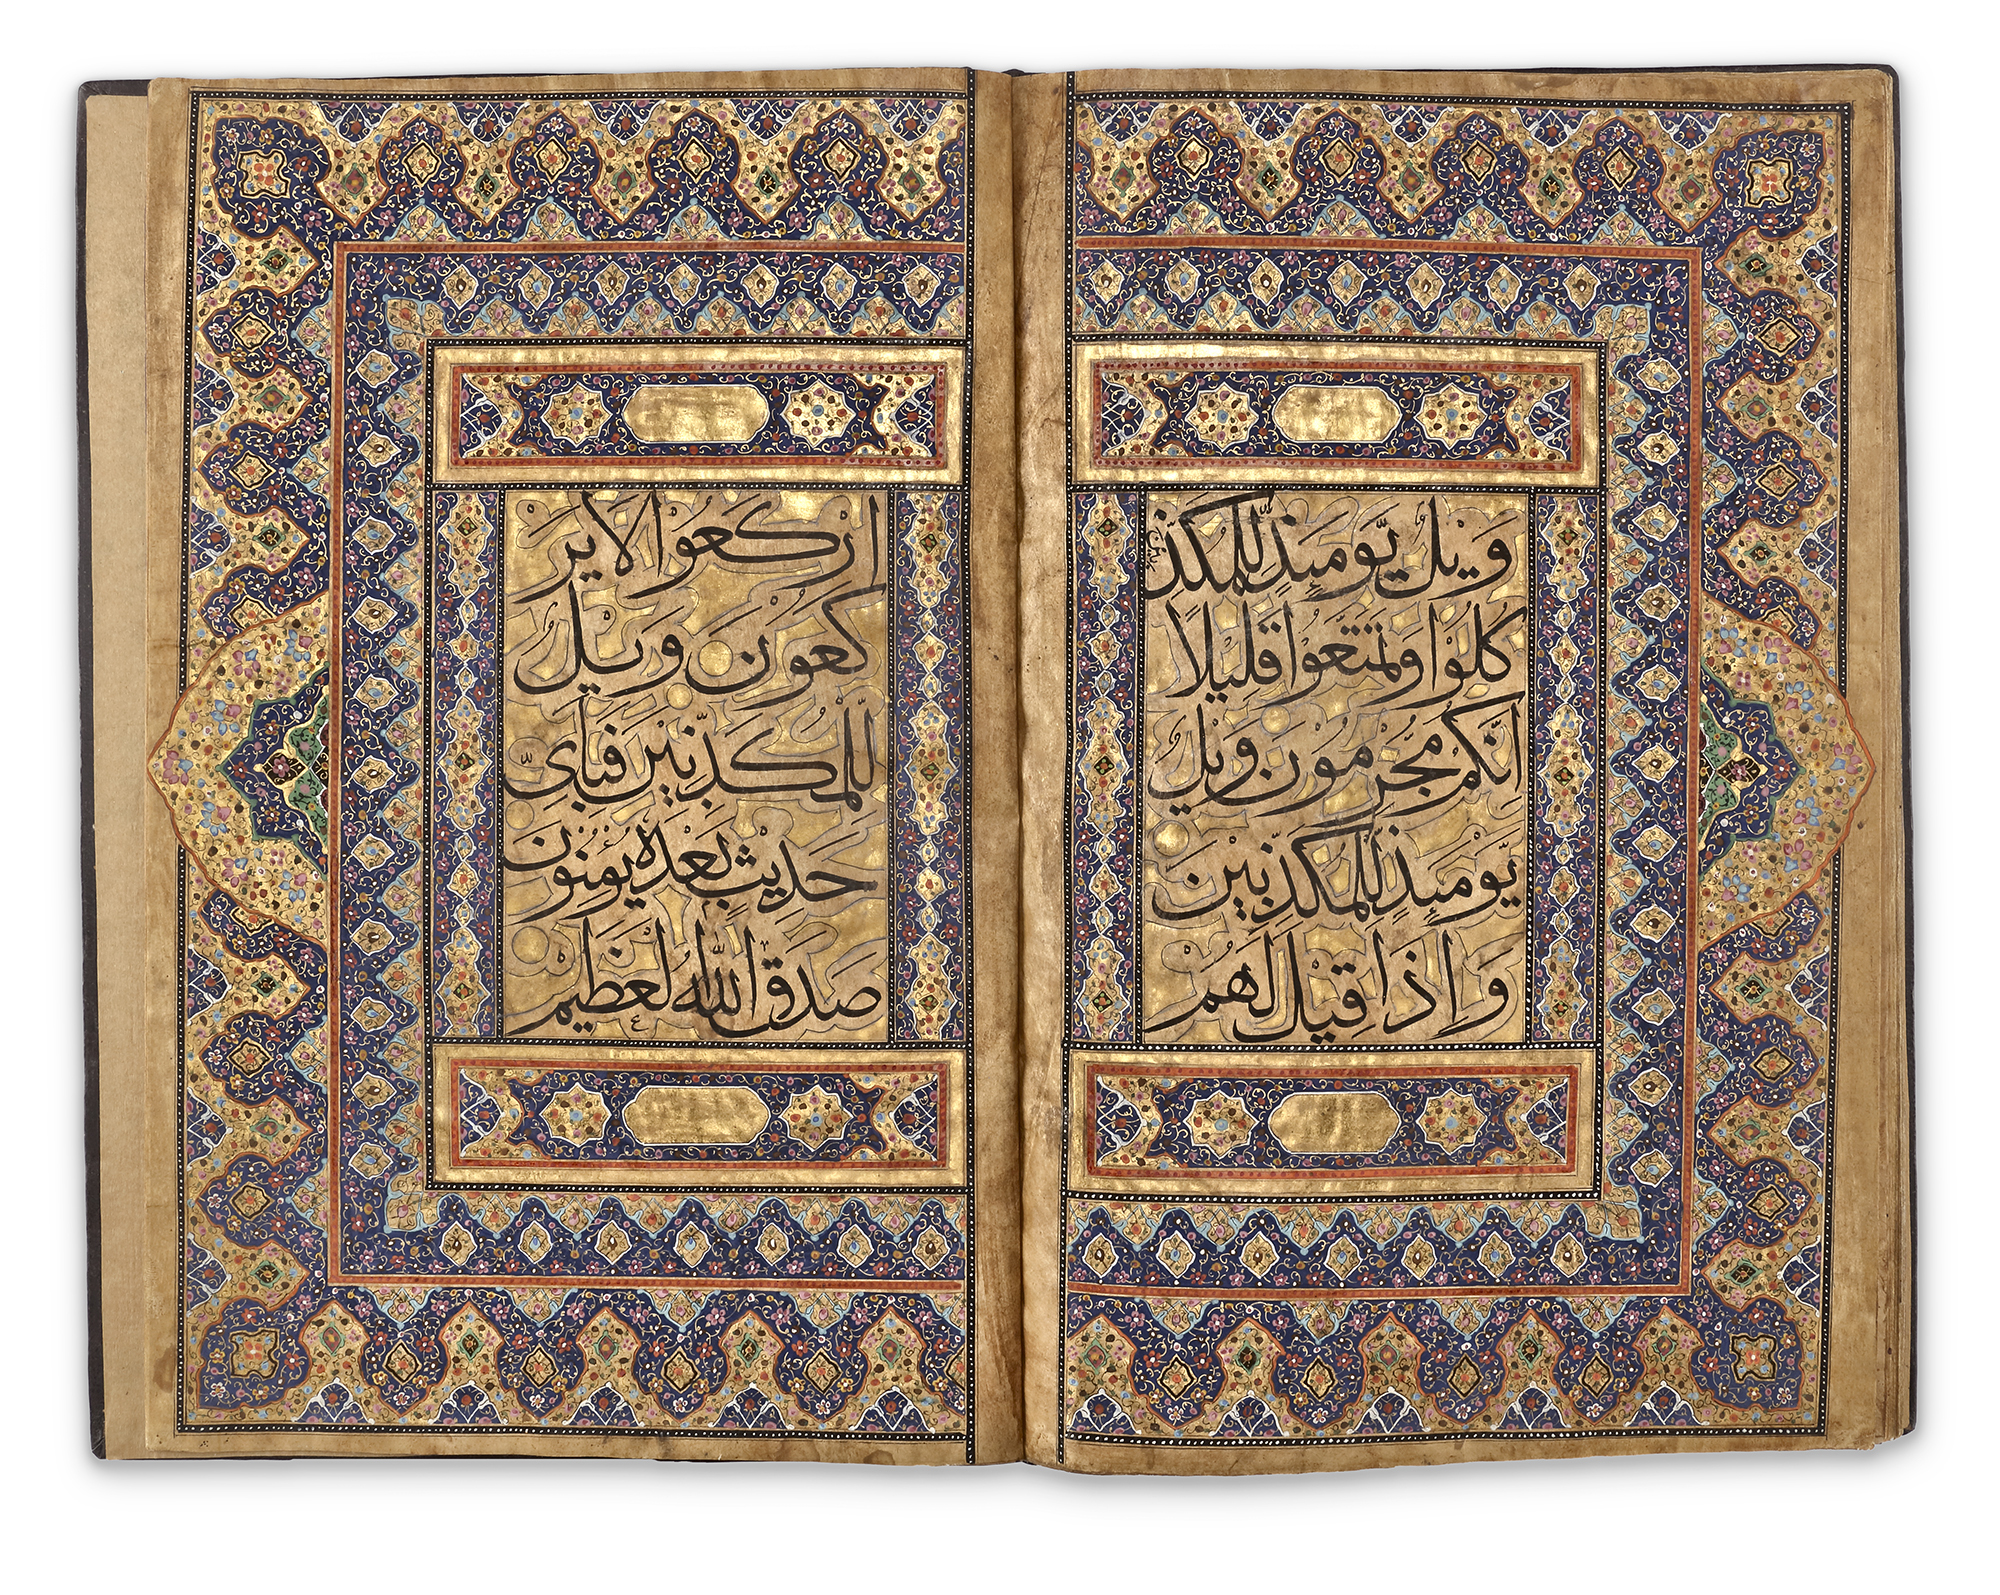 وَيْلٌ يَوْمَئِذٍ لِلْمُكَذِّ
بين
كُلُوا وَتَمَتَّعُوا قَلِيلًا
اِنَّكُمْ مُجْرِمُونَ وَيْلٌ
يَوْمَئِذٍ لِلْمُكَذِّبِينَ
وَاِذَا قِيلَ لَهُمُ
ارْكَعُوا لَا يَرْ
كَعُونَ وَيْلٌ
لِلْمُكَذِّبِينَ فَبِاَيِّ
حَدِيثٍ بَعْدَهُ يُؤْمِنُونَ
صَدَقَ اللّٰهُ الْعَظِيمُ